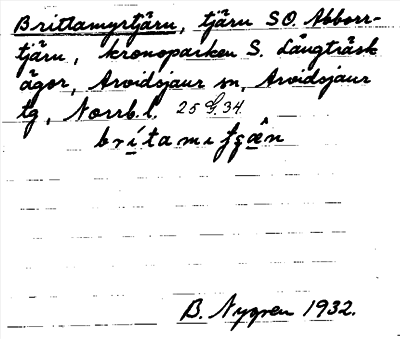 Brittamyrtjärn, tjärn SO. Abborr-
tjärn, kronoparken S. Långträsk
ägor, Arvidsjaur sn, Arvidsjaur
tg, Norrb. l. 25 G. 34
B. Nygren 1932.